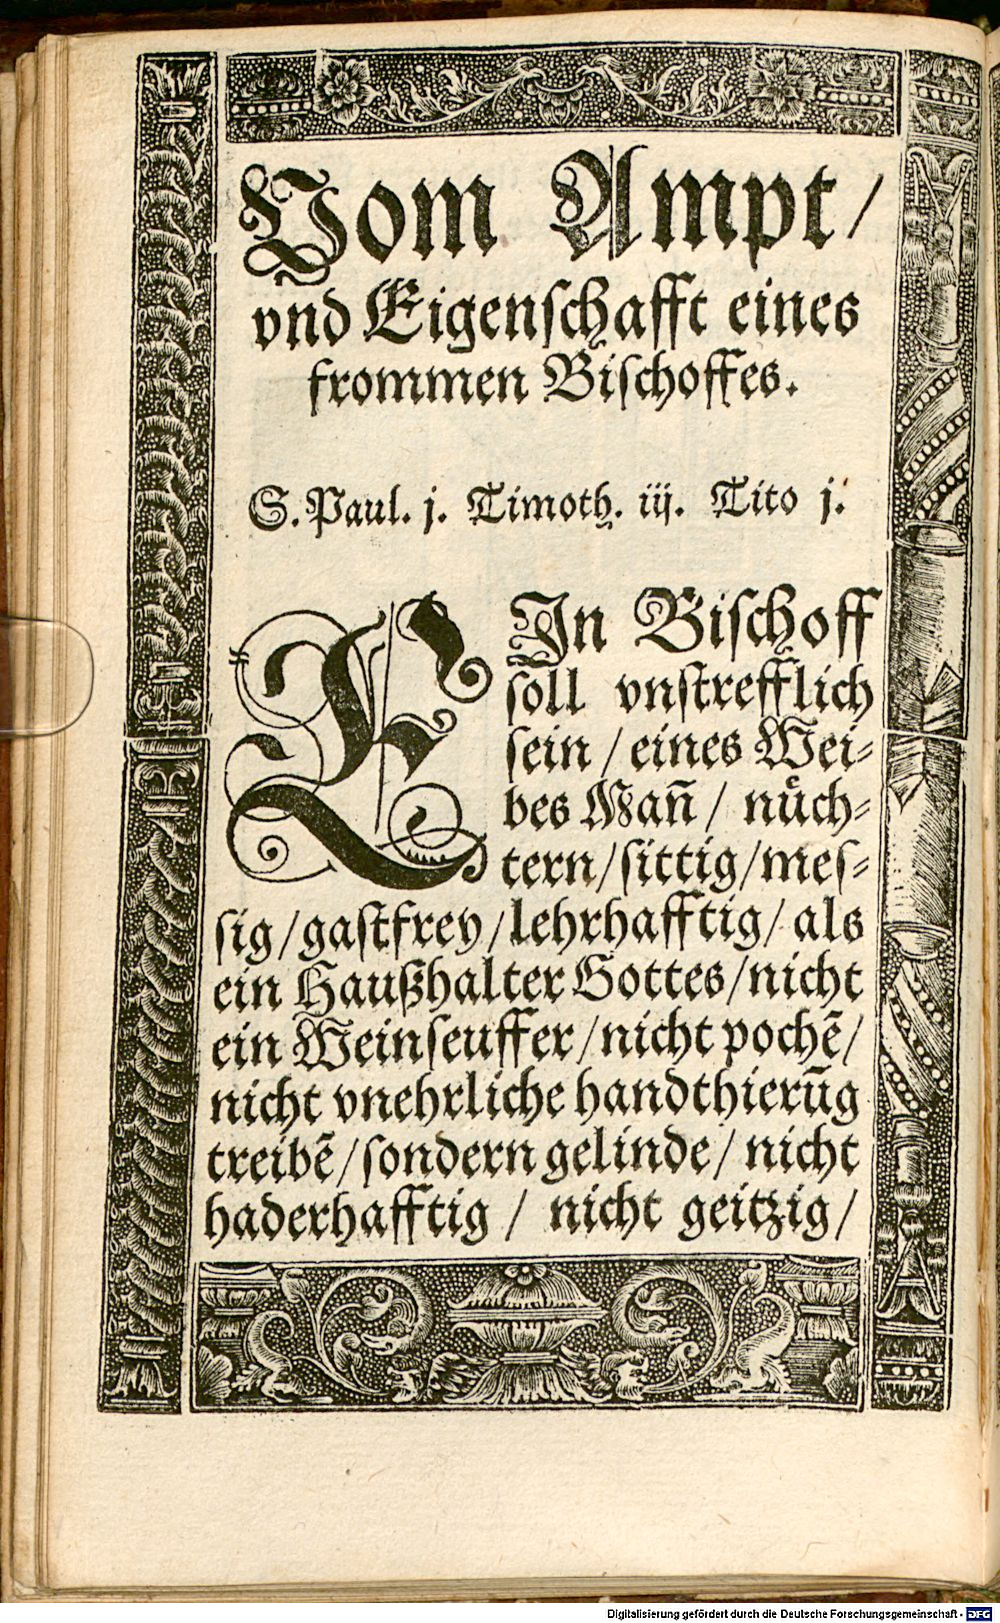 Vom Ampt /
vnd Eigenſchafft eines
frommen Biſchoffes.
S. Paul. j. Timoth. iij. Tito j.
EIn Biſchoff
ſoll vnſtrefflich
ſein / eines Wei-
bes Mañ / nuͤch-
tern / ſittig / meſ-
ſig / gaſtfrey / lehrhafftig / als
ein Haußhalter Gottes / nicht
ein Weinſeuffer / nicht pochẽ /
nicht vnehrliche handthierũg
treibẽ / ſondern gelinde / nicht
haderhafftig / nicht geitzig /
Digitalisierung gefördert durch die Deutsche Forschungsgemeinschaft - DFG